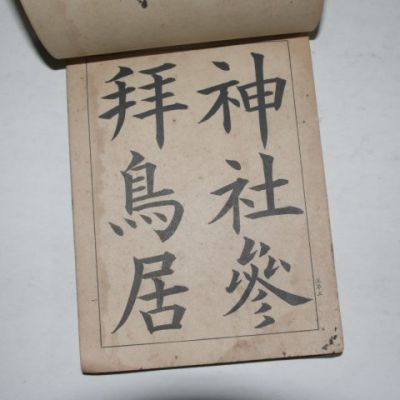 神社參
拜鳥居